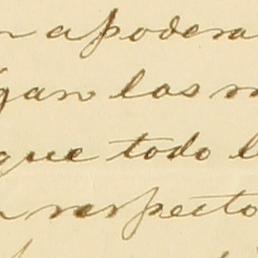 n apodera
igan las m
que todo l
respecto